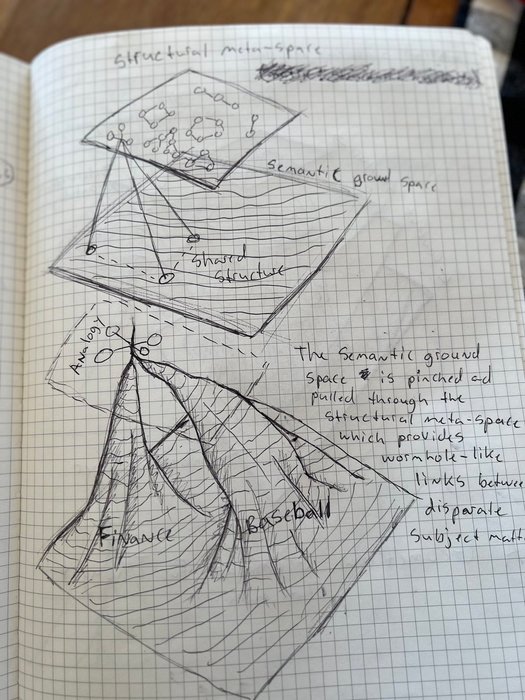 Structural meta-space
Semantic ground space
Shared
Structure
Analogy
The Semantic ground
space is pinched ad
pulled through the
structural meta-space
which provides
wormhole-like
links betwee
disparate
subject matt
Finance
Baseball